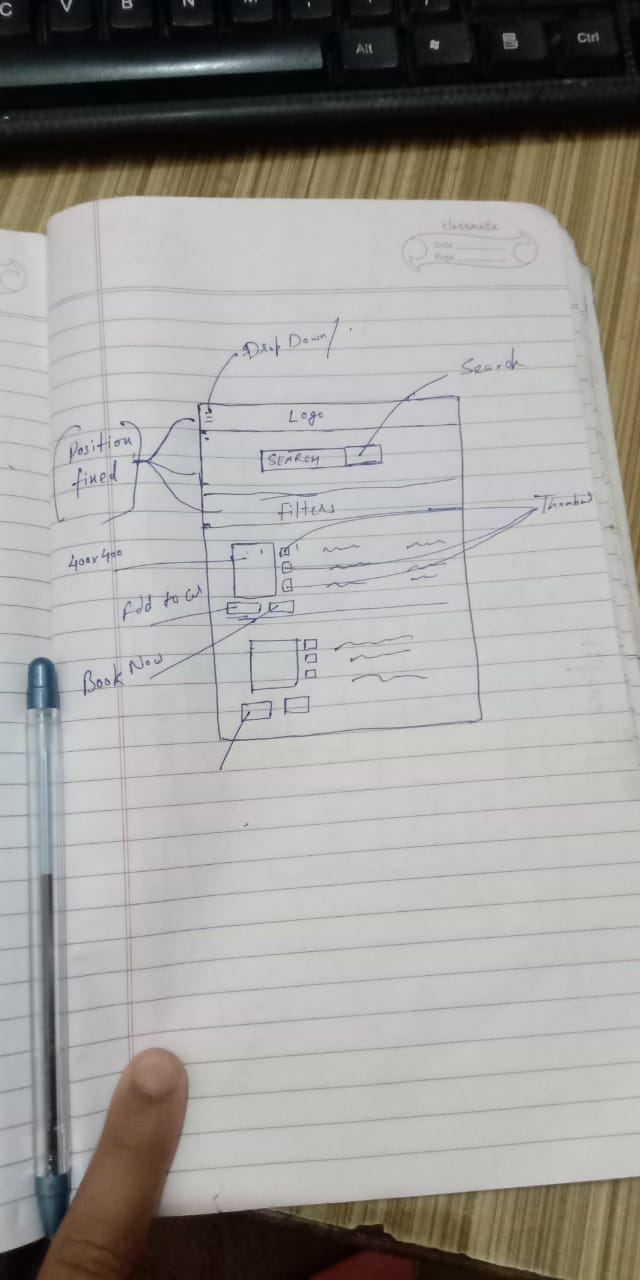 C V B N M
Alt Ctrl
classmate
Date
Page
Drop Down
Search
Logo
Position
fixed
SEARCH
Filters
400x400
Add to
Book Now